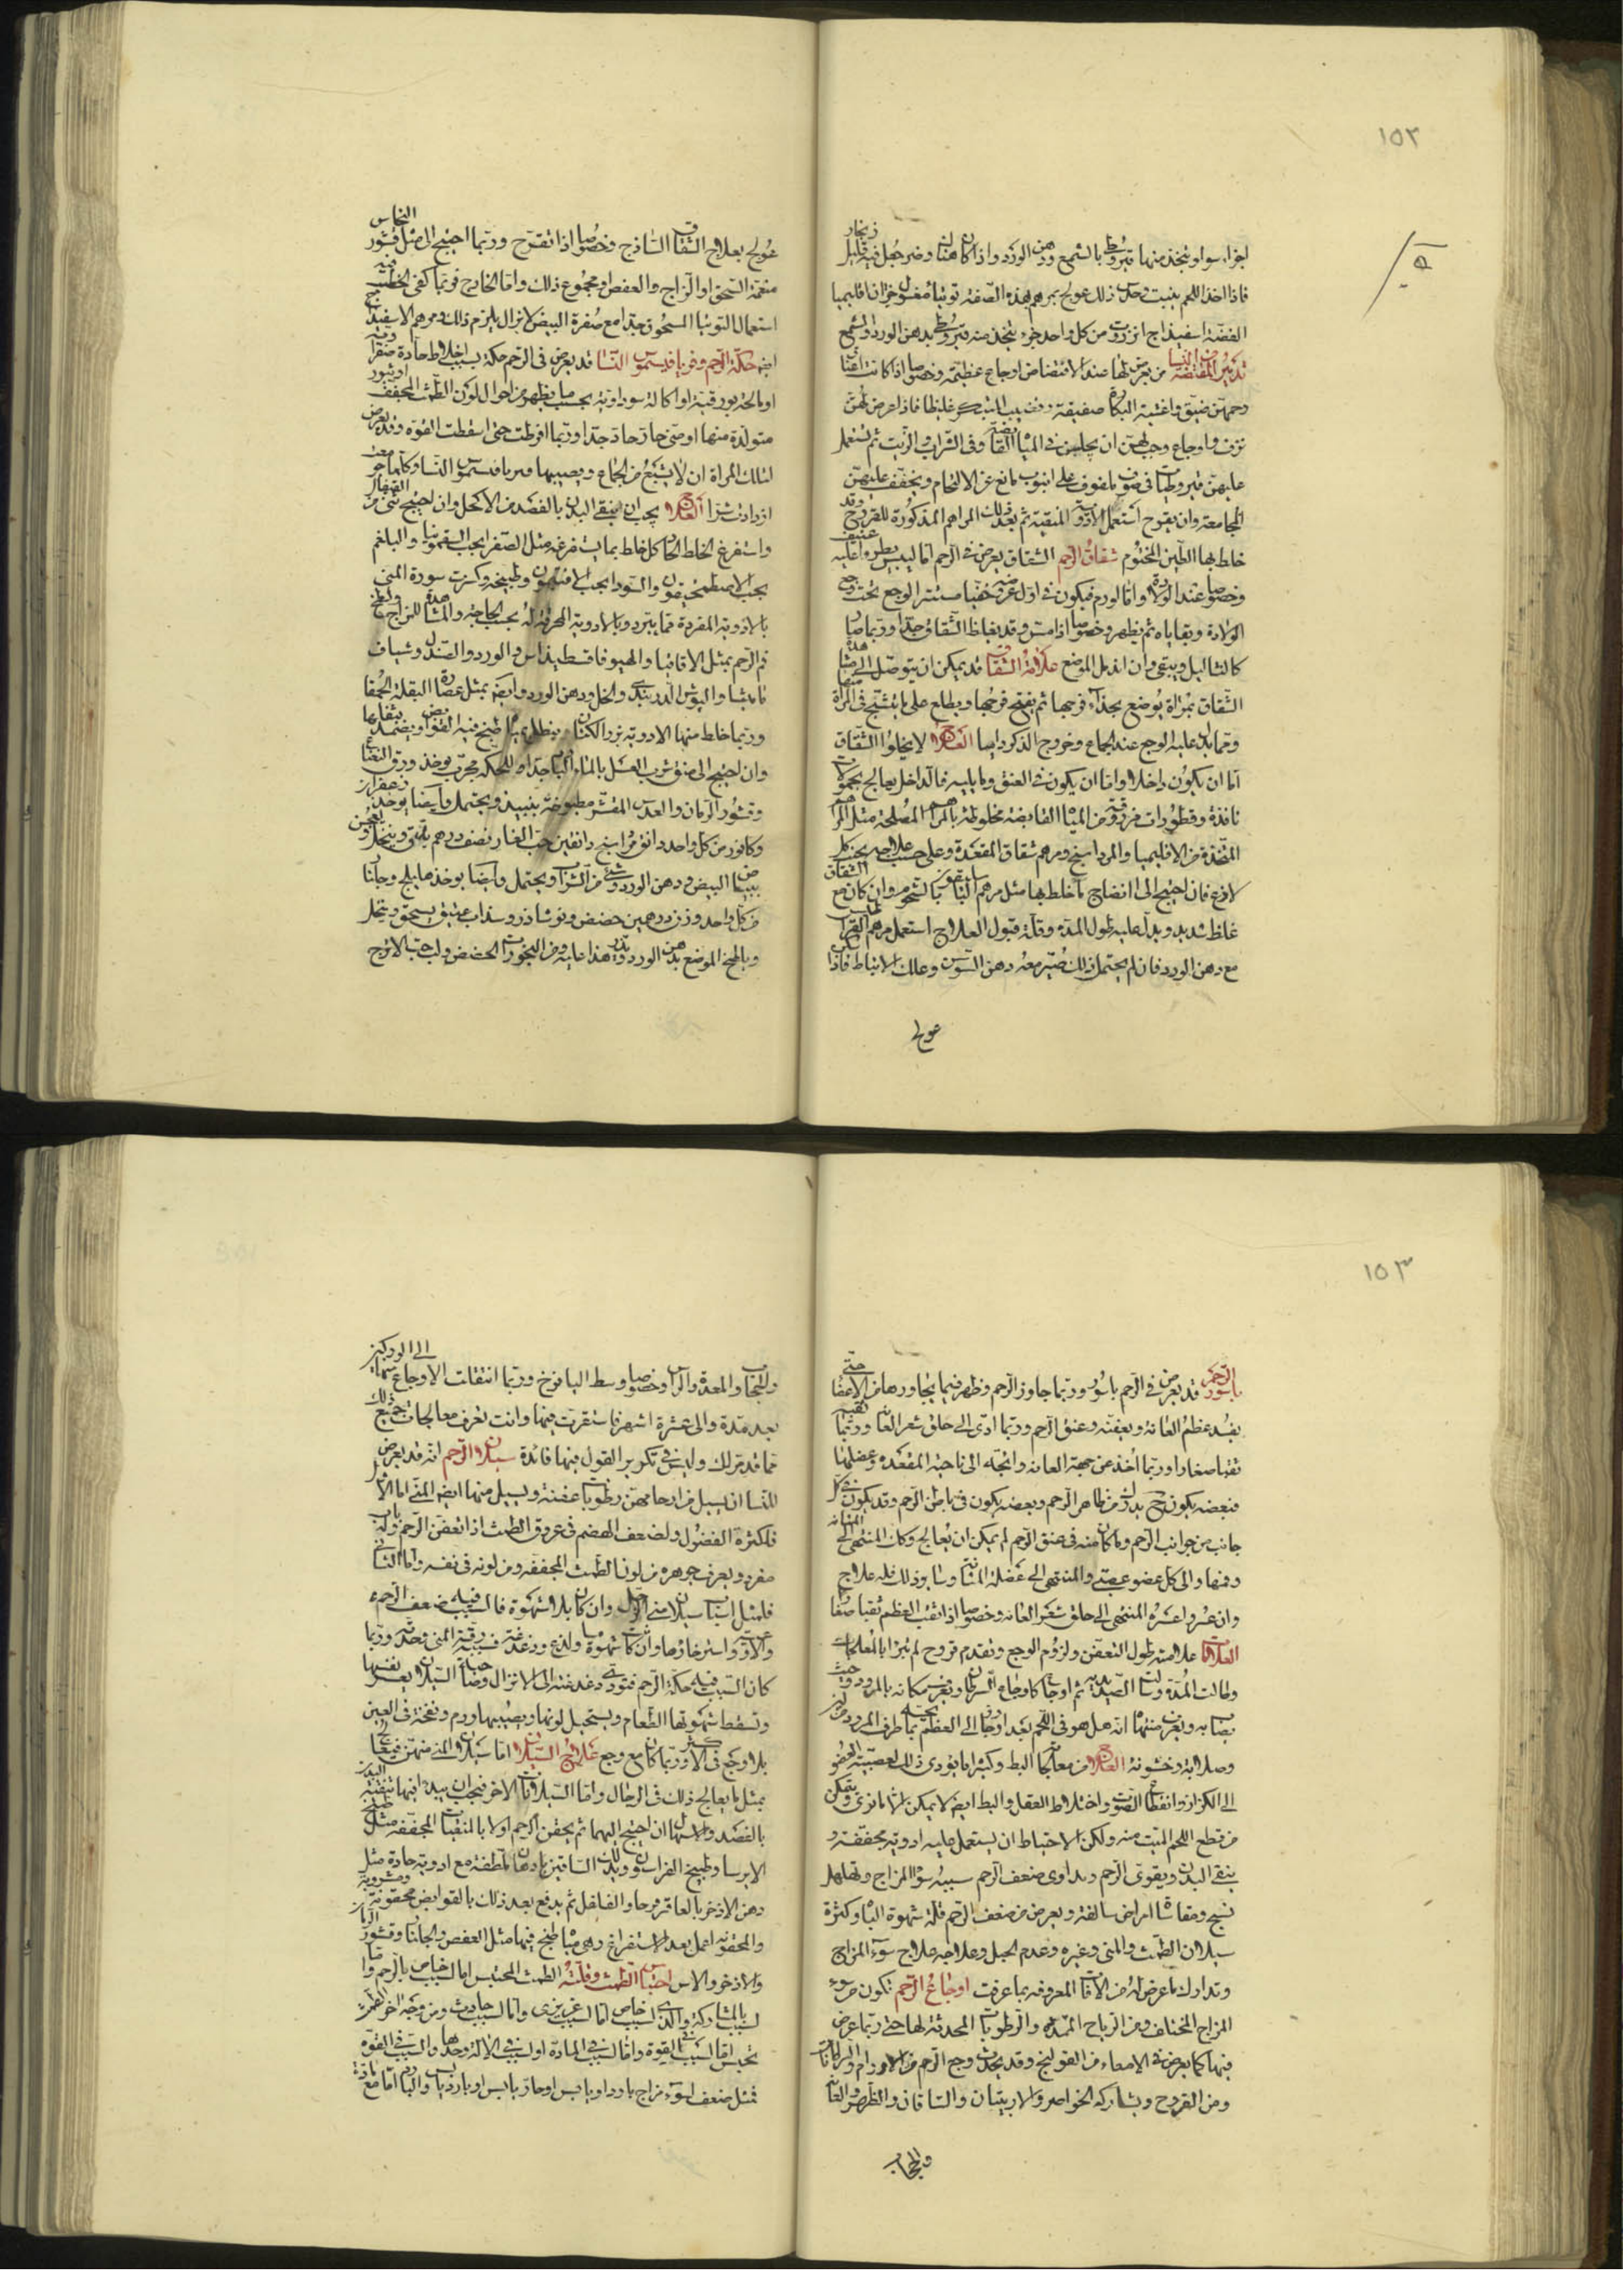 ١٥٢
اجزاء سواء ويتخذ منها قيروطي بالشمع ودهن الورد واذا كان هناك وضر جعل فيه قليل زنجار
فاذا اخذ اللحم ينبت وحدث ذلك عولج بمرهم بهذه الصفة توتيا مغسول جزآن اقليميا
الفضة اسفيداج انزروت من كل واحد جزء يتخذ منه قيروطي بدهن الورد والشمع
تدبير المفتضة من النساء من يعرض لها عند الافتضاض اوجاع عظيمة وخصوصا اذا كانت اعناق
رحمهن ضيق واغشية البكارة صفيقة وقضيب المبتكر غليظا فاذا عرض لهن
نزف واوجاع وجب لهن ان يجلسن في المياه القابضة وفي الشراب والزيت ثم يستعمل
عليهن قيروطيات في صوف ملفوف على انبوب مانع عن الالتحام ويخفف عليهن
المجامعة وان يقرح استعمل الادوية المنقية ثم بعد ذلك المراهم المذكورة للقروح وقد
خلط بها الطين المختوم شقاق الرحم الشقاق يعرض في الرحم اما ليبس يطرو عليه عنيف
وخصوصا عند الولادة واما لورم فيكون في اول عروضه خفيا مستتر الوجع تحت وجع
الولادة وبقاياه ثم يظهر وخصوصا اذا مس وقد يغلظ الشقاق جدا وربما صار
كالثآليل ويبقى وان اندمل الموضع علامة الشقاق قد يمكن ان يتوصل الى مشاهدة
الشقاق بمرآة يوضع بحذاء فرجها ثم يفتح فرجها ويطلع على ما يتشبح في المرآة منها
ومما يدل عليه الوجع عند الجماع وخروج الذكر داميا العلاج لا يخلوا الشقاق
اما ان يكون داخلا واما ان يكون في العنق وما يليه فالداخل يعالج بحمولات
نافذة وقطورات مزرقة من المياه القابضة مخلوطة بالمراهم المصلحة مثل المراهم
المتخذة من الاقليميا والمرداسنج ومرهم شقاق المقعدة وعلى حسب علاجه يجنب كل
لاذع فان احتيج الى انضاج ما خلط بها مثل مرهم الباسليقون بالشحوم وان كان مع الشقاق
غلظ شديد ويدل عليه طول المدة وقلة قبول العلاج استعمل مرهم القراطيس
مع دهن الورد فان لم يحتمل ذلك صير معه دهن السوسن وعلك الانباط فاذا
عولج
عولج بعلاج الشقاق الساذج وخصوصا اذا تقرح وربما احتيج الى مثل قشور النحاس
منعمة السحق او الزاج والعفص او مجموع ذلك واما الخارج فربما كفى الخطب فيه
استعمال التوتيا المسحوق جدا مع صفرة البيض لا تزال يلزم ذلك ومرهم الاسفيداج
ايضا حكة الرحم وفريافيسموس النساء قد يعرض في الرحم حكة بسبب اخلاط حادة صفراوية
او مالحة بورقية او اكالة سوداوية بحسب ما يظهر من احوال لون الطمث المجفف او بثور
متولدة منها او منى حار حاد جدا وربما افرطت حتى اسقطت القوة وقد يعرض
لتلك المراة ان لا يشبع من الجماع ويصيبها فريافيسموس النساء وكلما جومعت
ازدادت شرا العلاج يجب ان ينقى البدن بالفصد من الاكحل وان احتيج فمن القيفال
واستفرغ الخلط الحاد كل خلط بما يستفرغه مثل الصفراء بحب السقمونيا والبلغم
بحب الاصطمحيقون والسوداء بحب الافتيمون وطبيخه وكسرت سورة المنى
بالادوية المفردة مما يبرد وبالادوية المحرقة له بحسب الحاجة والمشاهدة للمزاج ولطخ
فم الرحم بمثل الاقاقيا والهيوفاقسطيداس والورد والصندل وشياف
ماميثا والبوش الدربندي والخل ودهن الورد وايضا بمثل عصارة البقلة الحمقا
وربما خلط منها الادوية بزر الكتان وينطل بمياه طبخ فيها القوابض ويضمد بثقلها
وان احتيج الى صنف شرب الغسل بالماء البارد جدا وللحكة مجرب يوخذ ورق النعناع
وقشور الرمان والعدس المقشر مطبوخة بنبيذ ويحتمل وايضا يوخذ زعفران
وكافور من كل واحد دانق مرداسنج دانقين حب الغار نصف درهم يدق وينخل ويعجن
ببياض البيض ودهن الورد وشئ من الشراب ويحتمل وايضا يوخذ هليلج وجاناد
من كل واحد وزن درهمين حضض ونوشادر وسذاب عتيق يسحق وينخل
ويلطخ الموضع بدهن الورد ويذر هذا عليه ومن البخورات الحضض ولب حب الاترج
١٥٣
باسور الرحم قد يعرض في الرحم باسور وربما جاوز الرحم وظهر فيما يجاورها من الاعضاء حتى
يفسد عظم العانة ويعفنه وعنق الرحم وربما ادى الى حلق شعر العانة وربما ثقبه
ثقبا صغارا وربما اخذ عن جهة العانة واتجه الى ناحية المقعدة وعضلها
فبعضه يكون بحيث يدرك من ظاهر الرحم وبعضه يكون في باطن الرحم وقد يكون في كل
جانب من جوانب الرحم وما كان منه في عنق الرحم لم يمكن ان يعالج وكان المنتهى الى المثانة
وفمها والى كل عضو عصبي والمنتهى الى عضلة المثانة وما يورذلك فله علاج
وان عسر واعسره المنتهى الى حلق شعر العانة وخصوصا اذا ثقب العظم ثقبا صغارا
العلامات علامته طول التعفن ولزوم الوجع وتقدم قروح لم تبرا بالمعالجات
وطالت المدة وسال الصديد ثم اوجاع كاوجاع السرطان ويعرف مكانه بالمرود وحيث
يصابه ويعرف منتهاه انه هل هو في اللحم بعد او جاوز الى العظم بما يحسه طرف المرود من لين
وصلابة وخشونة العلاج من معالجاته البط وكثيرا ما يؤدى ذلك لعصبية العضو
الى الكزاز وانقطاع الصوت واختلاط العقل والبط ايضا لا يمكن الا ما نزى ويتمكن
من قطع اللحم الميت منه ولكن الاحتياط ان يستعمل عليه ادوية مجففة و
ينقى البدن ويقوى الرحم ويداوى ضعف الرحم سببه سوء المزاج وتهلهل
نسج ومقاساة امراض سالفة ويعرض من ضعف الرحم قلة شهوة الباه وكثرة
سيلان الطمث والمنى وغيره وعدم الحبل وعلاجه علاج سوء المزاج
وتدارك ما عرض له من الآفات المعروفة بما عرفت اوجاع الرحم تكون من سوء
المزاج المختلف ومن الرياح الممددة والرطوبات المحدثة لها حتى ربما عرض
فيها كما يعرض في الامعاء من القولنج وقد يحدث وجع الرحم من الاورام والسرطانات
ومن القروح ويشاركه الخواصر والاربيتان والساقان والظهر والعانة
والحجاب
والحجاب والمعدة والراس وخصوصا وسط اليافوخ وربما انتقلت الاوجاع منها الى الوركين
بعد مدة والى عشرة اشهر فاستقرت فيها وانت تعرف معالجات جميع ذلك
مما قد مر لك وليس في تكرير القول فيها فائدة سيلان الرحم انه قد يعرض
للنساء ان يسيل من ارحامهن رطوبات عفنة ويسيل منها ايضا المنى اما الاول
فلكثرة الفضول ولضعف الهضم في عروق الطمث اذا تعفن الرحم وله باب
مفرد ويعرف جوهره من لون الطمث المجفف ومن لونه في نفسه واما الثاني
فلمثل اسباب سيلان منى الرجل وان كان بلا شهوة فالسبب فيه ضعف الرحم
والاوعية واسترخاؤها وان كان بشهوة ما ولذع ودغدغة فسببه رقة المنى وحدته وربما
كان السبب فيه حكة الرحم فتودى دغدغته الى الانزال وصاحبة السيلان يعسر نفسها
وتسقط شهوتها للطعام ويستحيل لونها ويصيبها ورم ونفخة في العين
بلا وجع في الاكثر وربما كان مع وجع علاج السيلان اما سيلان المنى منهن فيعالج
بمثل ما يعالج ذلك في الرجال واما السيلانات الاخر فيجب ان يبدا فيها بتنقية البدن
بالفصد والاسهال ان احتيج اليهما ثم يحقن الرحم اولا بالمنقيات المجففة مثل طبيخ
الايرسا وطبيخ الفراسيون ويدلك الساقين بادهان ملطفة مع ادوية حادة مثل
دهن الاذخر بالعاقرقرحا والفلفل ثم يدفع بعد ذلك بالقوابض محقونة ومشروبة
والمحقونة اعمل بعد الاستفراغ وهى مياه طبخ فيها مثل العفص والجلنار وقشور الرمان
والاذخر والاس احتباس الطمث وقلته الطمث المحتبس اما لسبب خاص بالرحم واما
لسبب بالمشاركة والذي لسبب خاص اما لسبب غريزى واما لسبب حادث ومن وجه اخر الطمث
يحتبس اما لسبب في القوة واما لسبب في المادة او لسبب في الالة وحدها والسبب في القوة
فمثل ضعف لسوء مزاج بارد او يابس او حار يابس او بارد يابس والبارد اما مع مادة